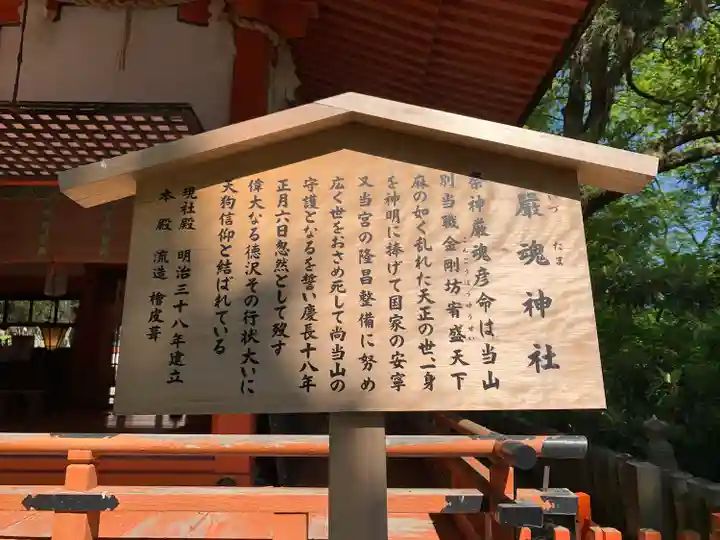 いつ たま
嚴魂神社
祭神嚴魂彦命は当山
別当職金剛坊宥盛天下
こんごうぼうゆうせい
麻の如く乱れた天正の世、一身
を神明に捧げて国家の安寧
又当宮の隆昌整備に努め
広く世をおさめ死して尚当山の
守護となるを誓い慶長十八年
正月六日忽然として歿す
偉大なる徳沢その行状大いに
天狗信仰と結ばれている
現社殿 明治三十八年建立
本殿 流造 檜皮葺